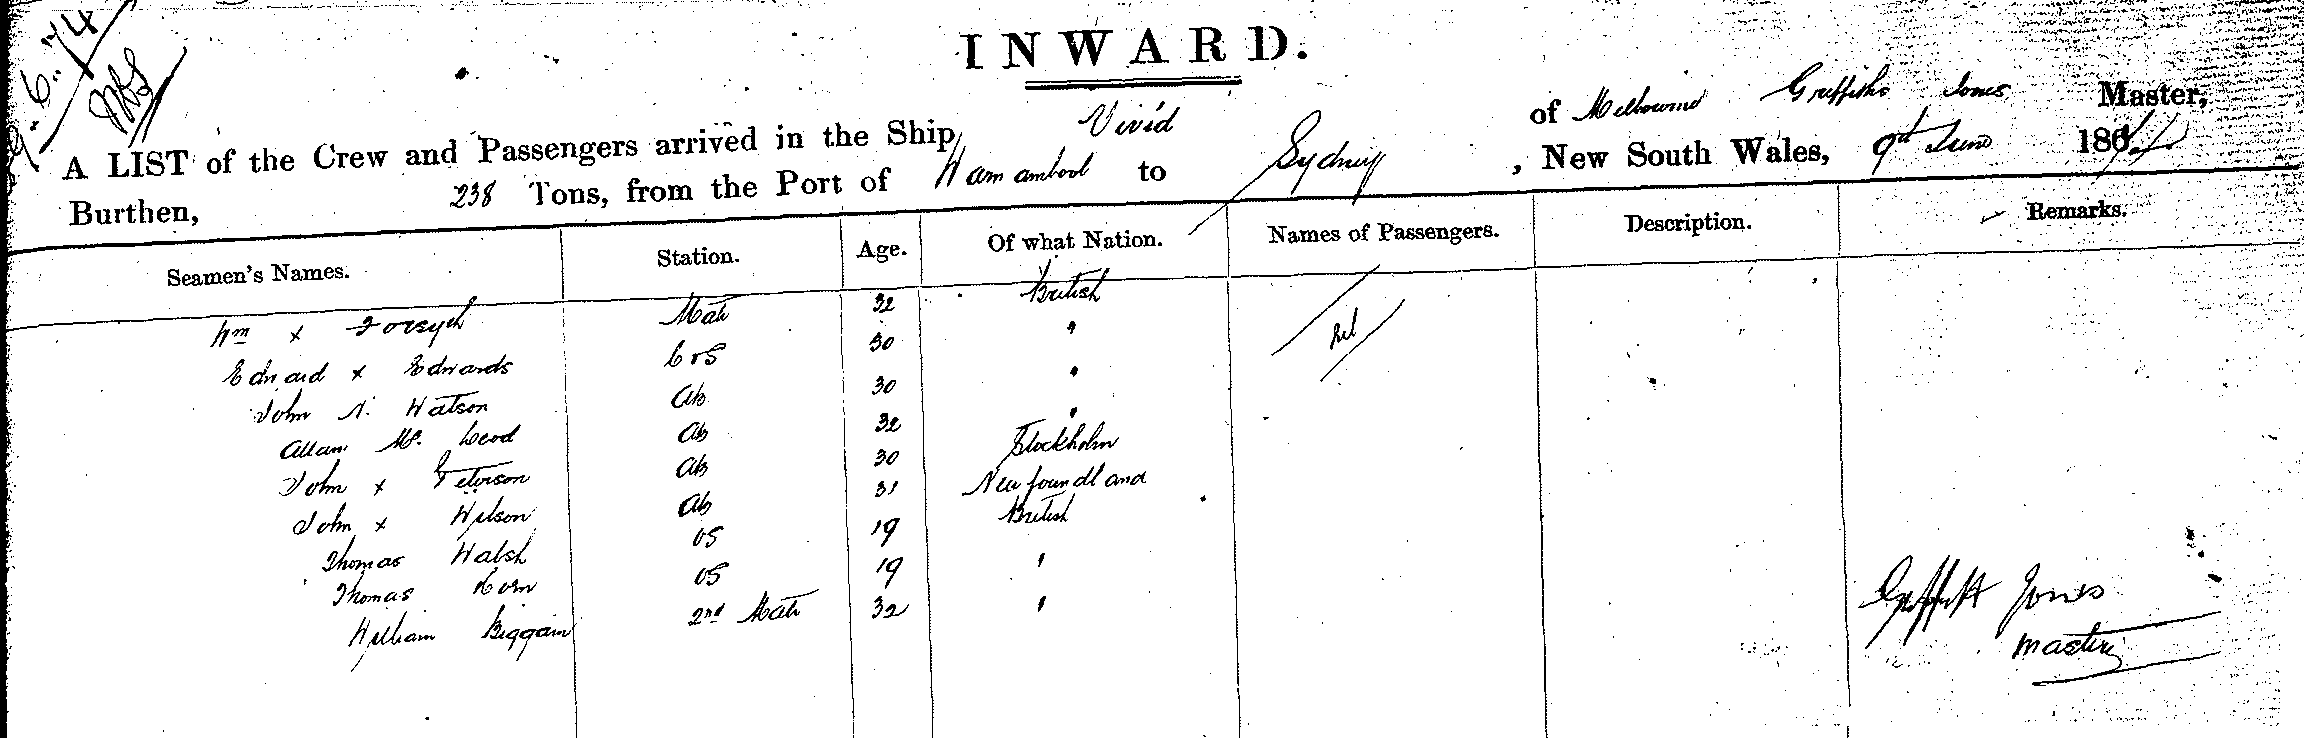 9.6.74
INWARD.
A LIST of the Crew and Passengers arrived in the Ship Vivid of Melbourne Griffith Jones Master,
Burthen, 238 Tons, from the Port of Warnambool to Sydney, New South Wales, 9th June 1874
Seamen's Names. Station. Age. Of what Nation. Names of Passengers. Description. Remarks.
Wm x Forsyth Mate 32 British Nil
Edward x Edwards C&S 30 "
John N. Watson AB 30 "
Allan Mc. Leod AB 32 "
John x Peterson AB 30 Stockholm
John x Wilson AB 31 Newfoundland
Thomas Walsh OS 19 British
Thomas Horn OS 19 "
William Biggain 2nd Mate 32 "
Griffith Jones
Master